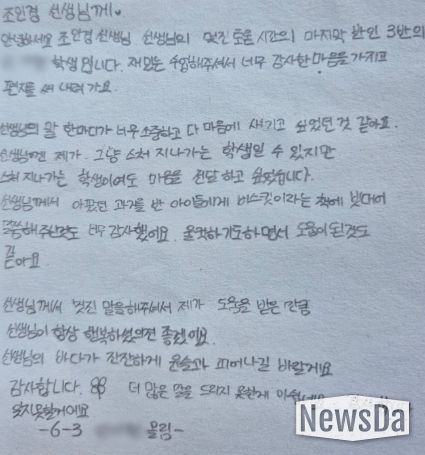 조인경 선생님께♥
안녕하세요 조인경 선생님 선생님의 멋진 도움 시간의 마지막 반인 3반의
학생입니다. 재밌는 수업해주셔서 너무 감사한 마음을 가지고
편지를 써 내려가요.
선생님의 말 한마디가 너무 소중하고 다 마음에 새기고 싶었던 것 같아요.
선생님껜 제가 그냥 스쳐 지나가는 학생일 수 있지만
스쳐 지나가는 학생이여도 마음을 전달하고 싶었습니다.
선생님께서 아팠던 과거를 반 아이들에게 비스킷이라는 책에 빗대어
말씀해주신것도 너무 감사했어요. 울컥하기도하면서 도움이 된것도
같아요
선생님께서 멋진 말을해주셔서 제가 도움을 받은 만큼
선생님이 항상 행복하셨으면 좋겠어요.
선생님의 바다가 잔잔하게 윤슬과 피어나길 바랄게요
감사합니다. 더 많은 말을 드리지 못한게
잊지못할거에요
-6-3 올림-
NewsDa